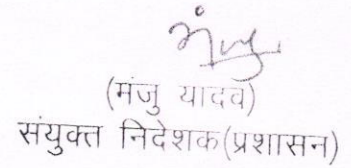 मंजु
(मंजु यादव)
संयुक्त निदेशक(प्रशासन)